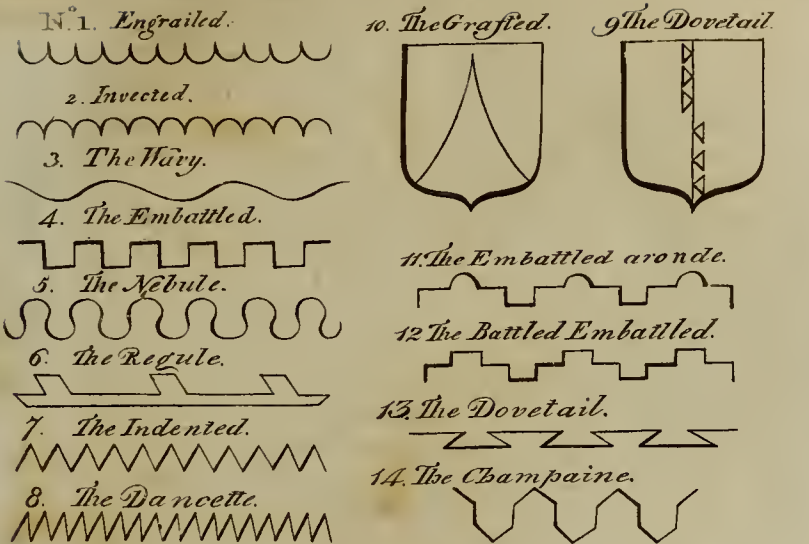 Nº 1. Engrailed.
2. Invected.
3. The Wavy.
4. The Embattled.
5. The Nebule.
6. The Regule.
7. The Indented.
8. The Dancette.
10. The Grafted.
9 The Dovetail
11. The Embattled aronde.
12 The Battled Embattled.
13. The Dovetail.
14. The Champaine.